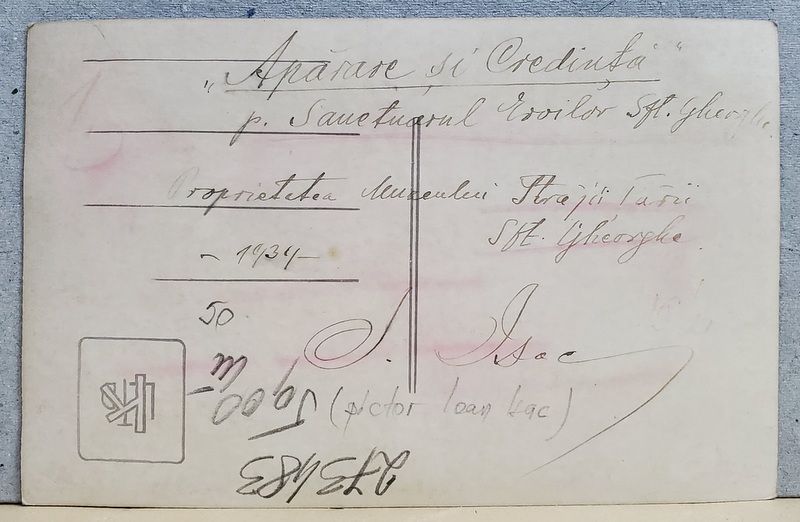 „Apărare și Credință"
p. Sanctuarul Eroilor Sft. Gheorghe.
Proprietatea Muzeului Străjii Țării
Sft. Gheorghe
- 1934 -
50
I. Isac
(pictor Ioan Isac)
273483